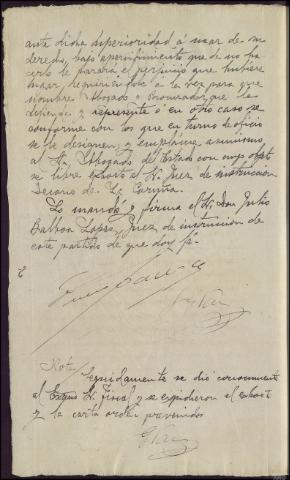 ante dicha superioridad á usar de su
derecho, bajo apercibimiento que de no ha
cerlo le parará el perjuicio que hubiere
lugar, requiriéndole á la vez para que
nombre Abogado y Procurador que le
defienda y represente ó en otro caso se
conforme con los que en turno de oficio
se le designen, y emplácese asimismo
al Sr. Abogado del Estado con cuyo objeto
se libre exhorto al Sr. Juez de instrucción
Decano de La Coruña.
Lo mandó y firma el Sr. Don Julio
Balboa Lopez, Juez de instrucción de
este partido de que doy fé.
Nota/ Seguidamente se dió conocimiento
al Excmo Sr. Fiscal y se expidieron el exhorto
y la carta orden prevenidos